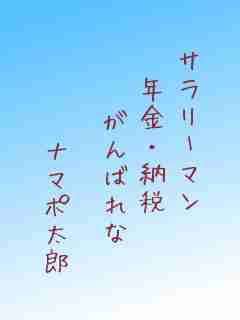 サラリーマン
年金・納税
がんばれな
ナマポ太郎